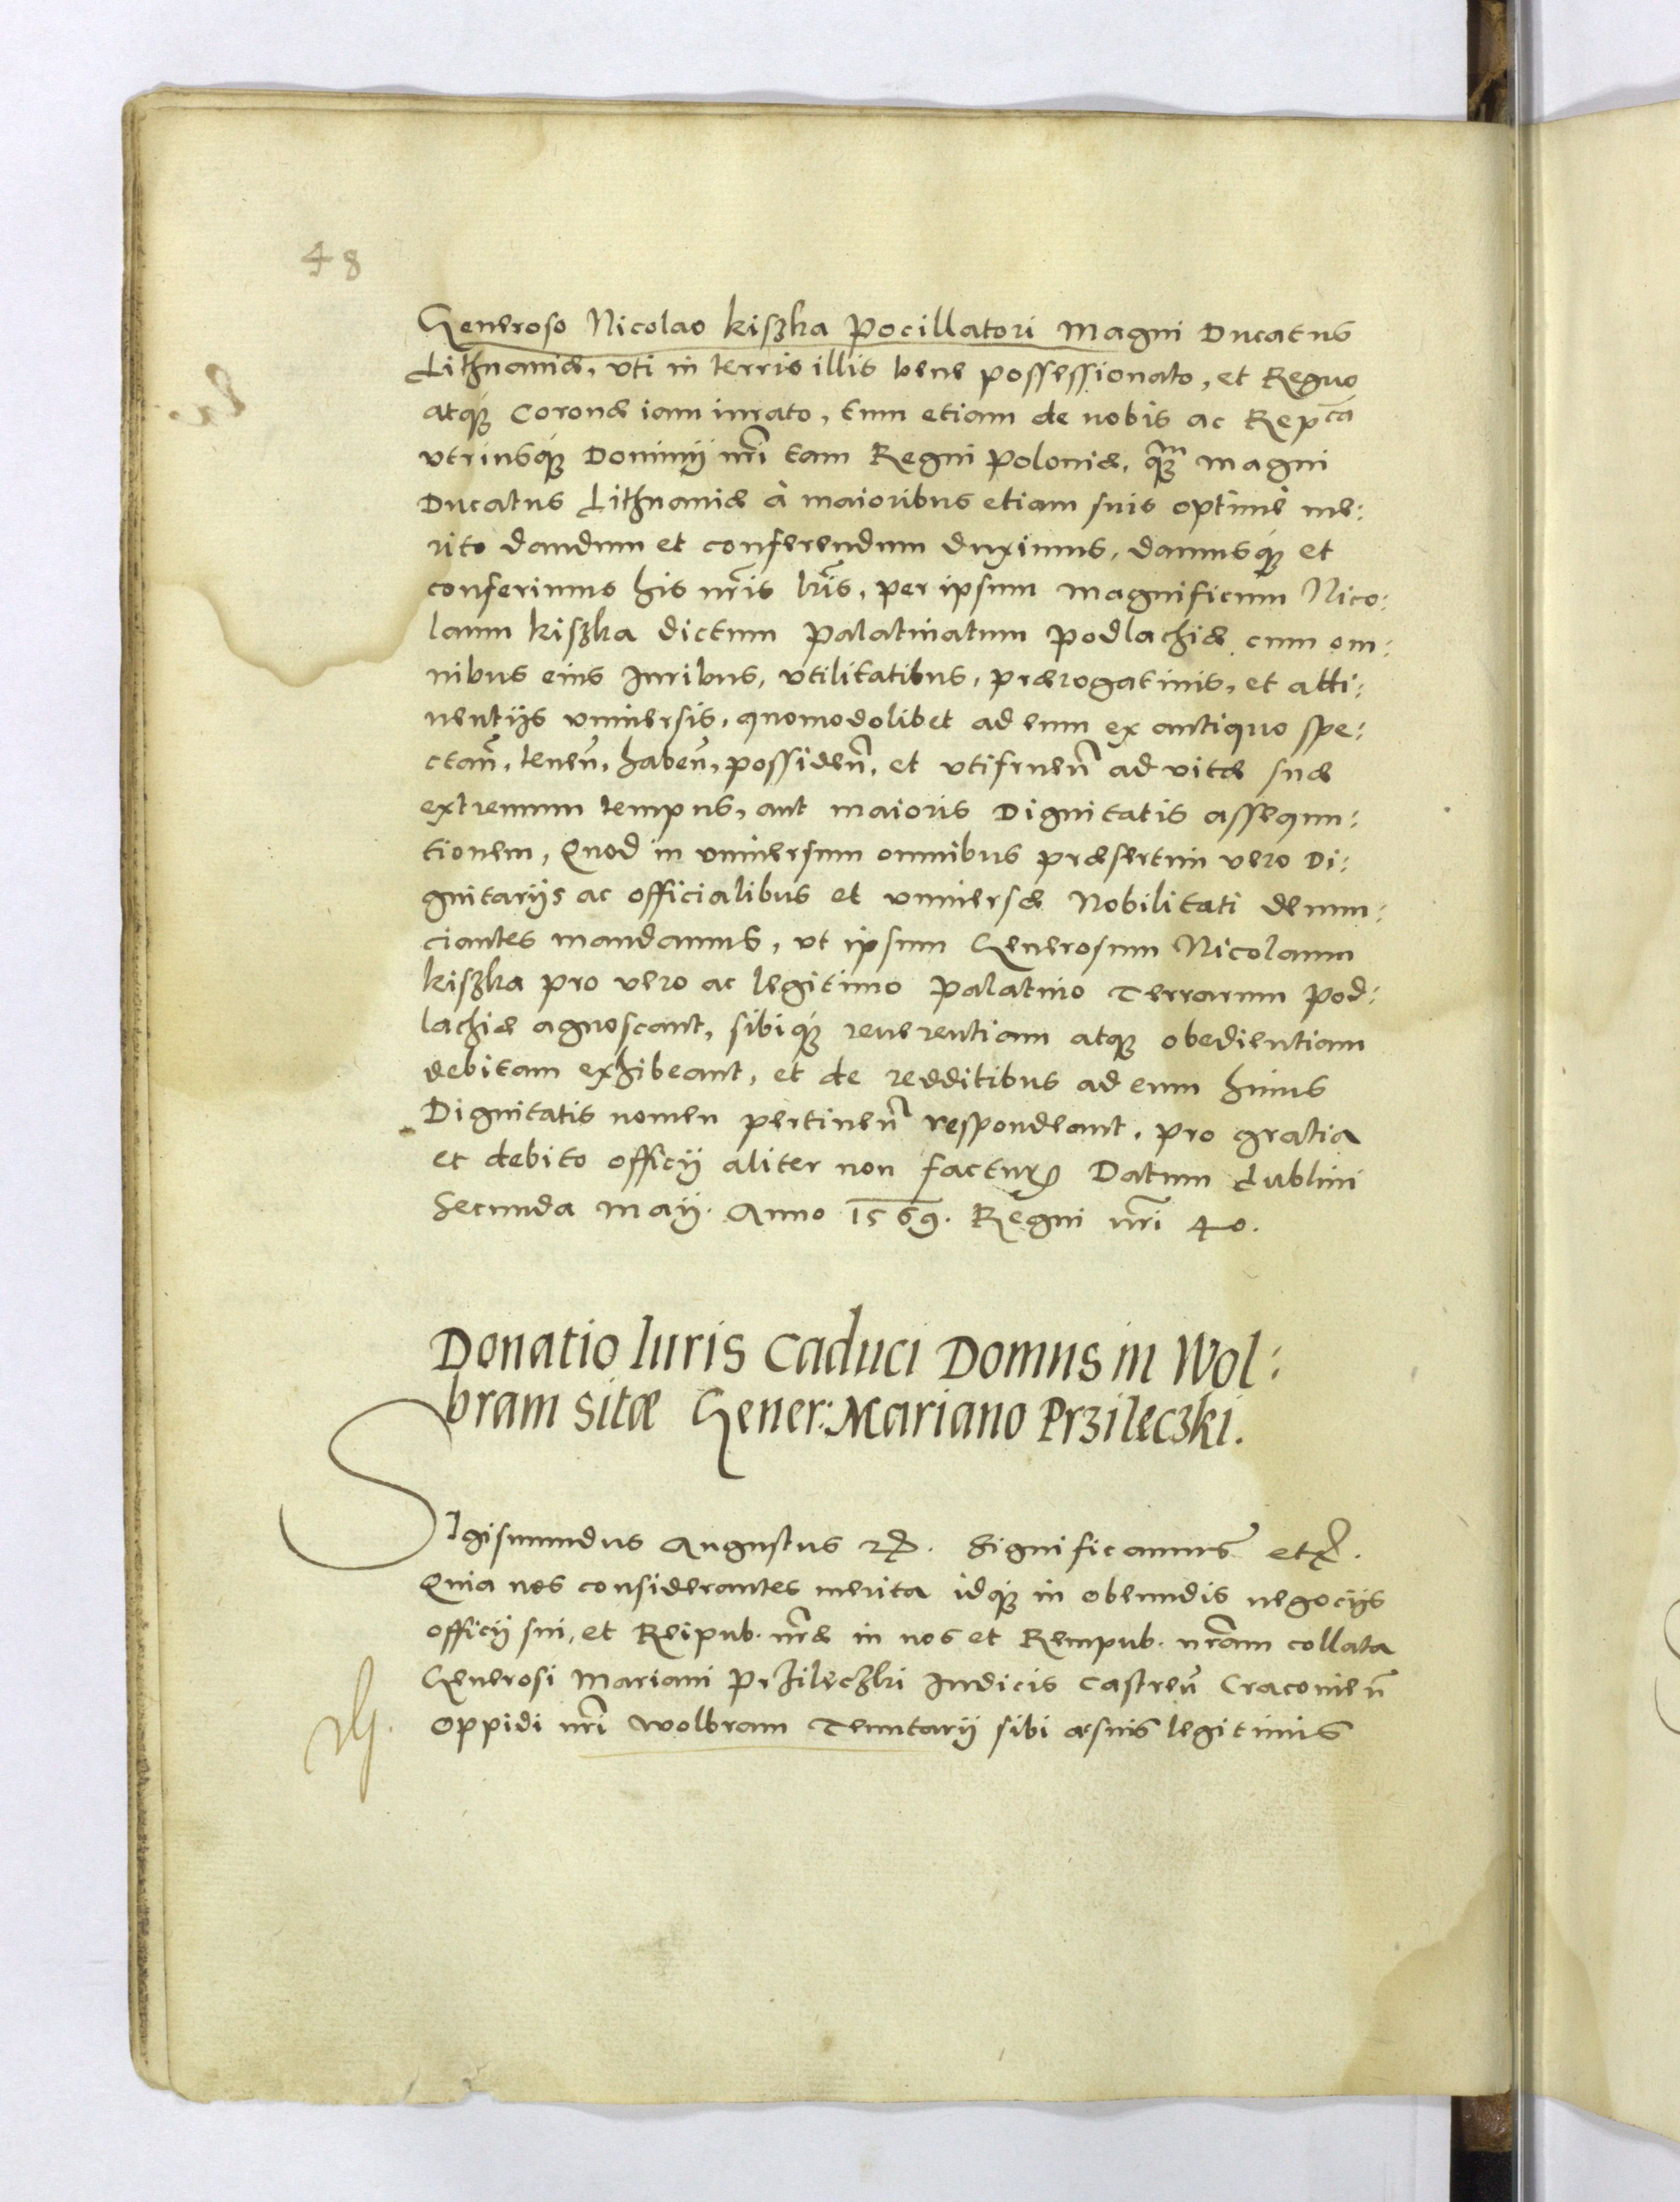 48
Generoso Nicolao kiszka Pocillatori Magni Ducatus
Lithuaniæ, vti in terris illis bene possessionato, et Regno
atque Coronæ iam iurato, tum etiam de nobis ac Repca
vtriusque Dominij nri tam Regni Poloniæ, quam Magni
Ducatus Lithuaniæ à maioribus etiam suis optimè me:
rito dandum et conferendum duximus, damusque et
conferimus his nris lris, per ipsum Magnificum Nico:
laum kiszka dictum Palatinatum Podlachiæ cum om:
nibus eius Iuribus, vtilitatibus, prærogatiuis, et atti:
nentijs vniuersis, quomodolibet ad eum ex antiquo spe:
ctan, tenen, haben, possiden, et vtifruen ad vitæ suæ
extremum tempus, aut maioris Dignitatis assequu:
tionem, Quod in vniuersum omnibus præsertim vero Di:
gnitarijs ac officialibus et vniuersæ Nobilitati denun:
ciantes mandamus, vt ipsum Generosum Nicolaum
kiszka pro vero ac legitimo Palatino Terrarum Pod:
lachiæ agnoscant, sibique reuerentiam atque obedientiam
debitam exhibeant, et de redditibus ad eum huius
Dignitatis nomen pertinen respondeant, pro gratia
et debito officij aliter non facturi Datum Lublini
Secunda Maij. Anno 1569. Regni nri 40.
Donatio Iuris Caduci Domus in Wol:
bram sitæ Gener: Mariano Przileczki.
Sigismundus Augustus etc. Significamus etc.
Quia nos considerantes merita idque in obeundis negocijs
officij sui, et Reipub. nræ in nos et Rempub. nram collata
Generosi Mariani Przileczki Iudicis Castren Cracouien
Oppidi nri Wolbram Tenutarij sibi ac suis legitimis